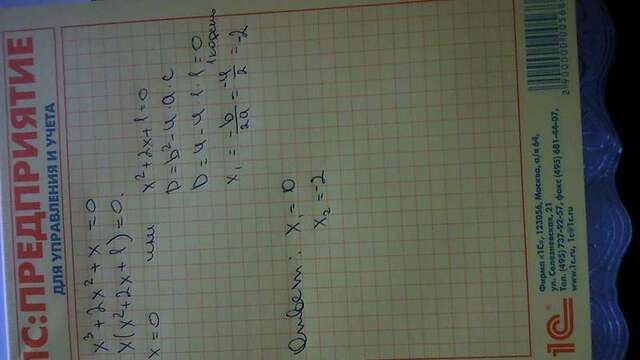 1С:ПРЕДПРИЯТИЕ
ДЛЯ УПРАВЛЕНИЯ И УЧЕТА
x³+2x²+x =0
x(x²+2x+1)=0.
x=0 или x²+2x+1=0
D=b²-4·a·c
D=4-4·1·1=0
1 корень
x₁ = -b/2a = -4/2 = -2
Ответ: x₁=0
x₂=-2
1С
Фирма «1С», 123056, Москва, а/я 64,
ул. Селезневская, 21
Тел. (495) 737-92-57, факс (495) 681-44-07,
www.1c.ru, 1c@1c.ru
2 900000 00568